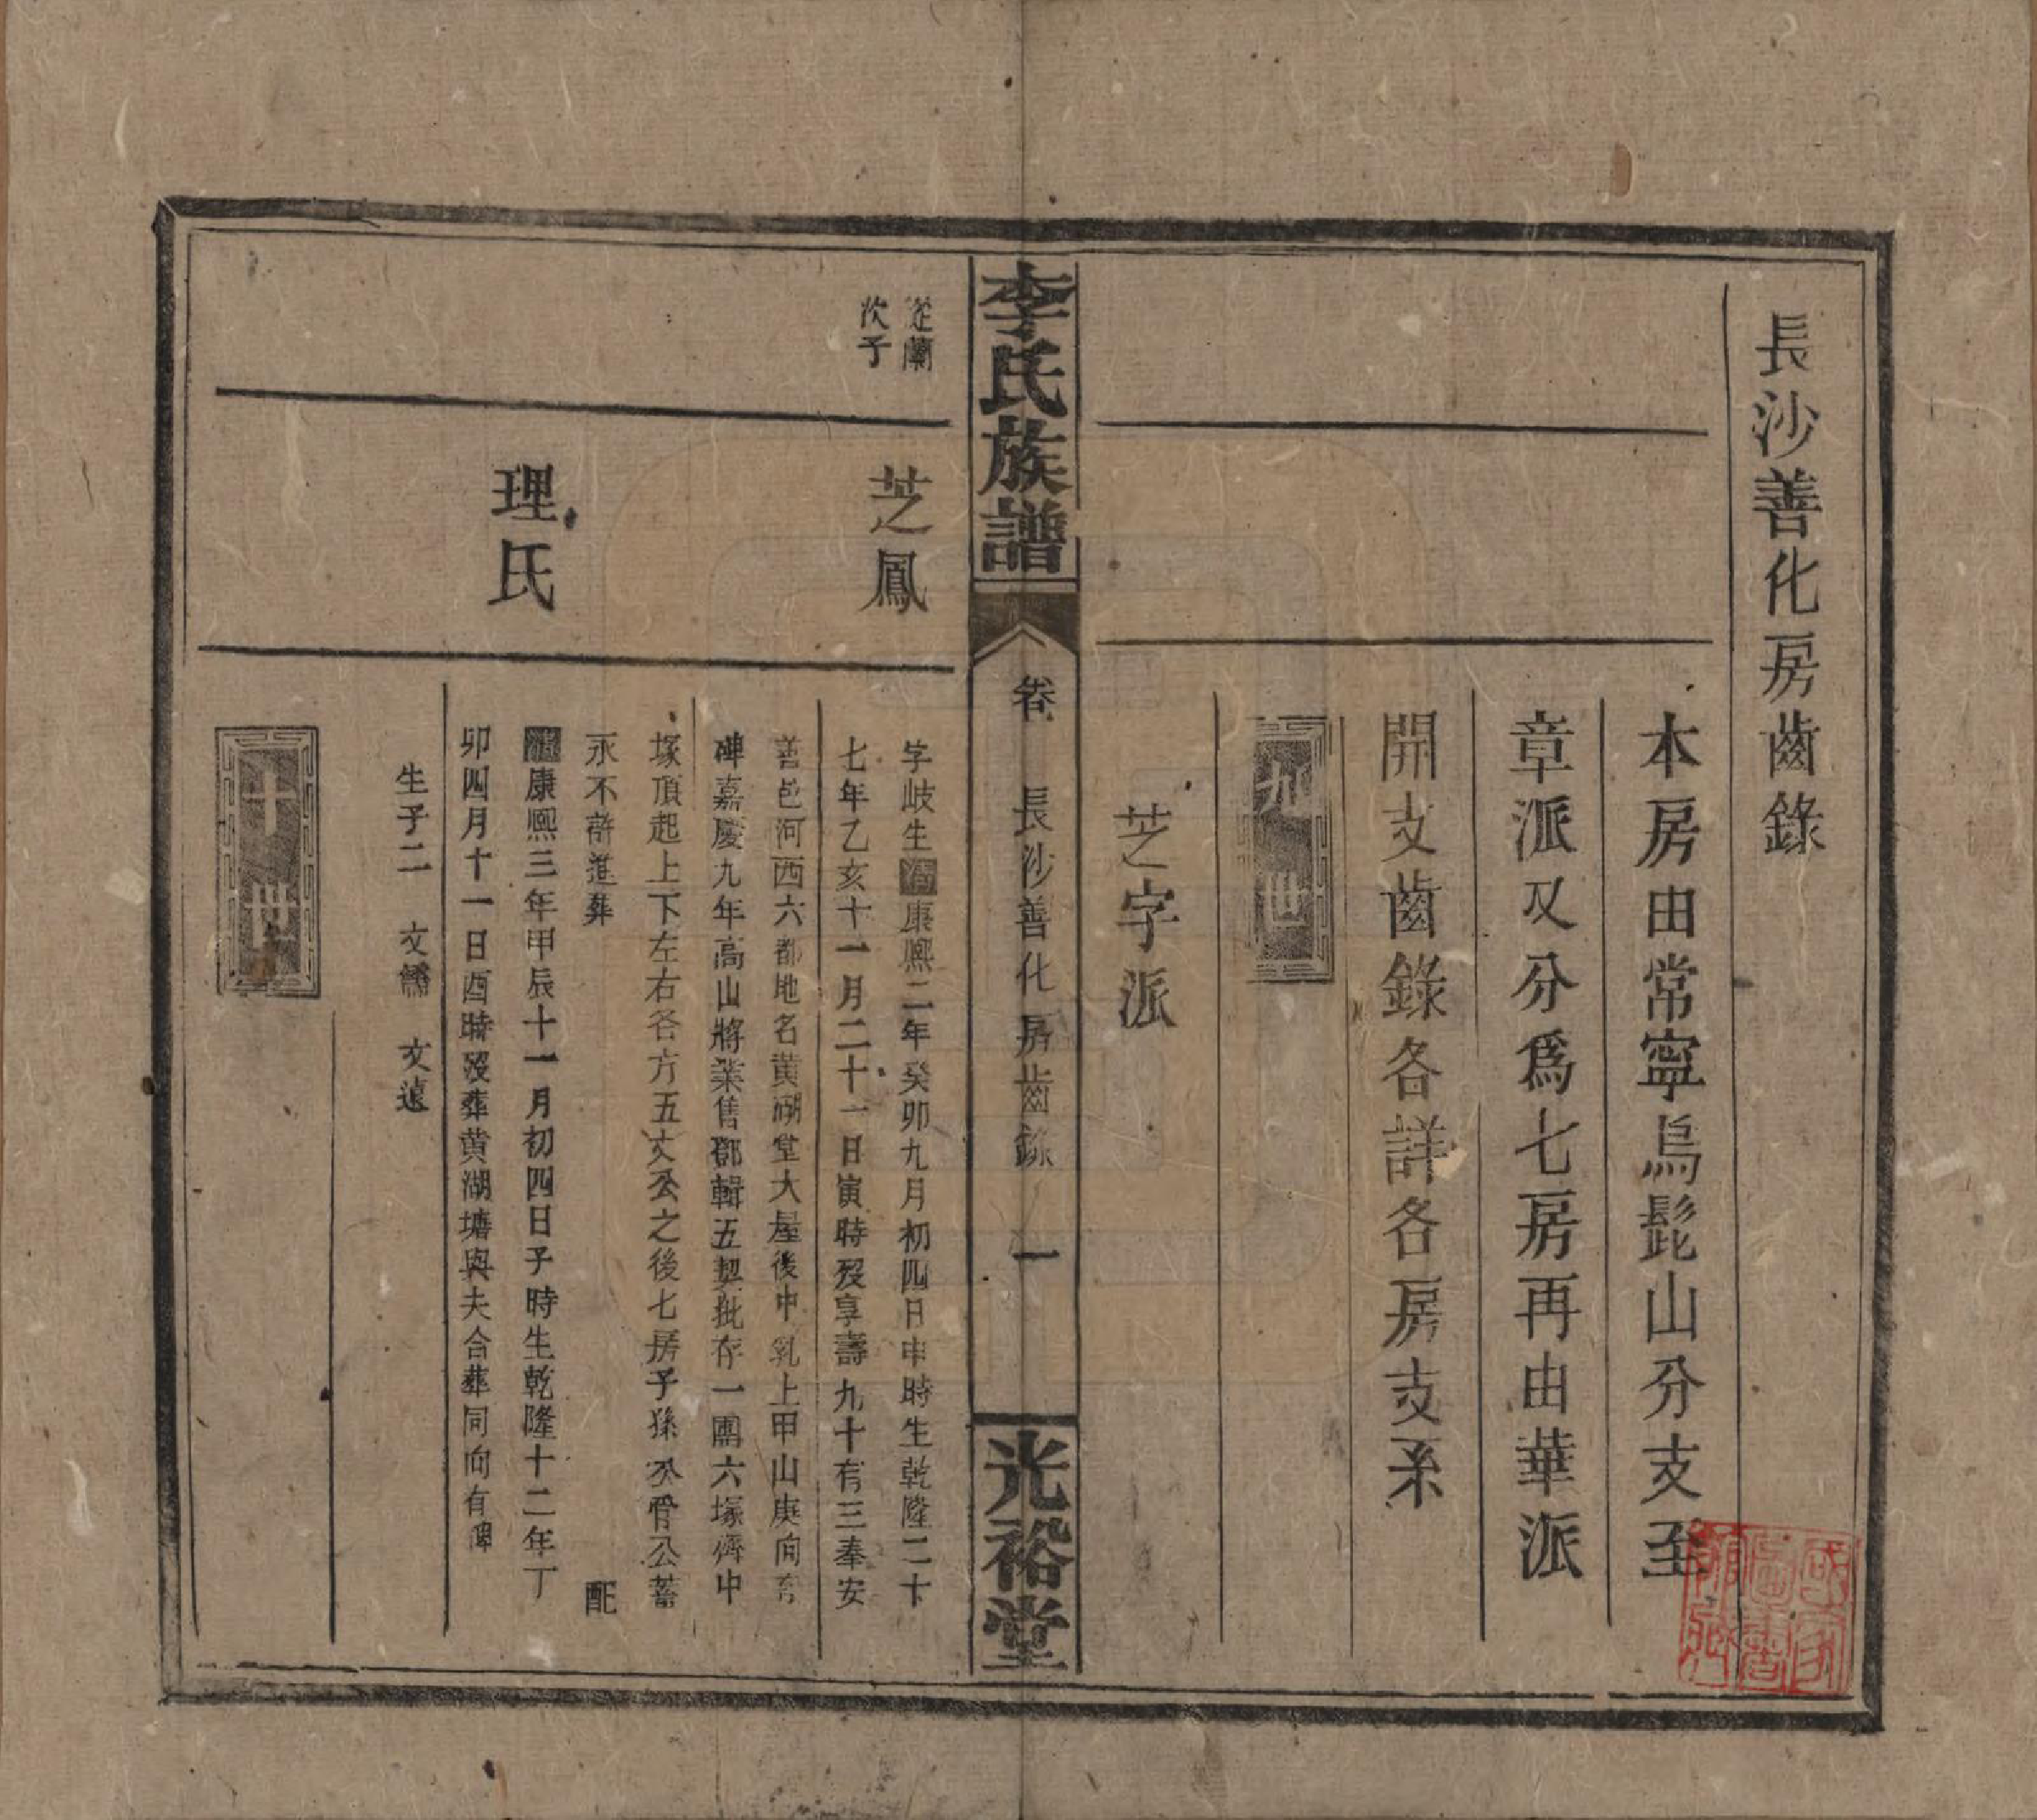 長沙善化房齒錄
本房由常寧烏髭山分支至
章派又分爲七房再由華派
開支齒錄各詳各房支系
九世
芝字派
李氏族譜
卷
長沙善化房齒錄
一
光裕堂
從蘭
次子
芝鳳
字岐生清康熙二年癸卯九月初四日申時生乾隆二十
七年乙亥十一月二十一日寅時歿享壽九十有三奉安
善邑河西六都地名黃湖堂大屋後中乳上甲山庚向有
碑嘉慶九年高山將業售鄧輯五契批存一團六塚儕中
塚頂起上下左右各方五丈公之後七房子孫公管公蓄
永不許進葬
配
理氏
清康熙三年甲辰十一月初四日子時生乾隆十二年丁
卯四月十一日酉時歿葬黃湖塘與夫合葬同向有碑
生子二 文 文遠
十世